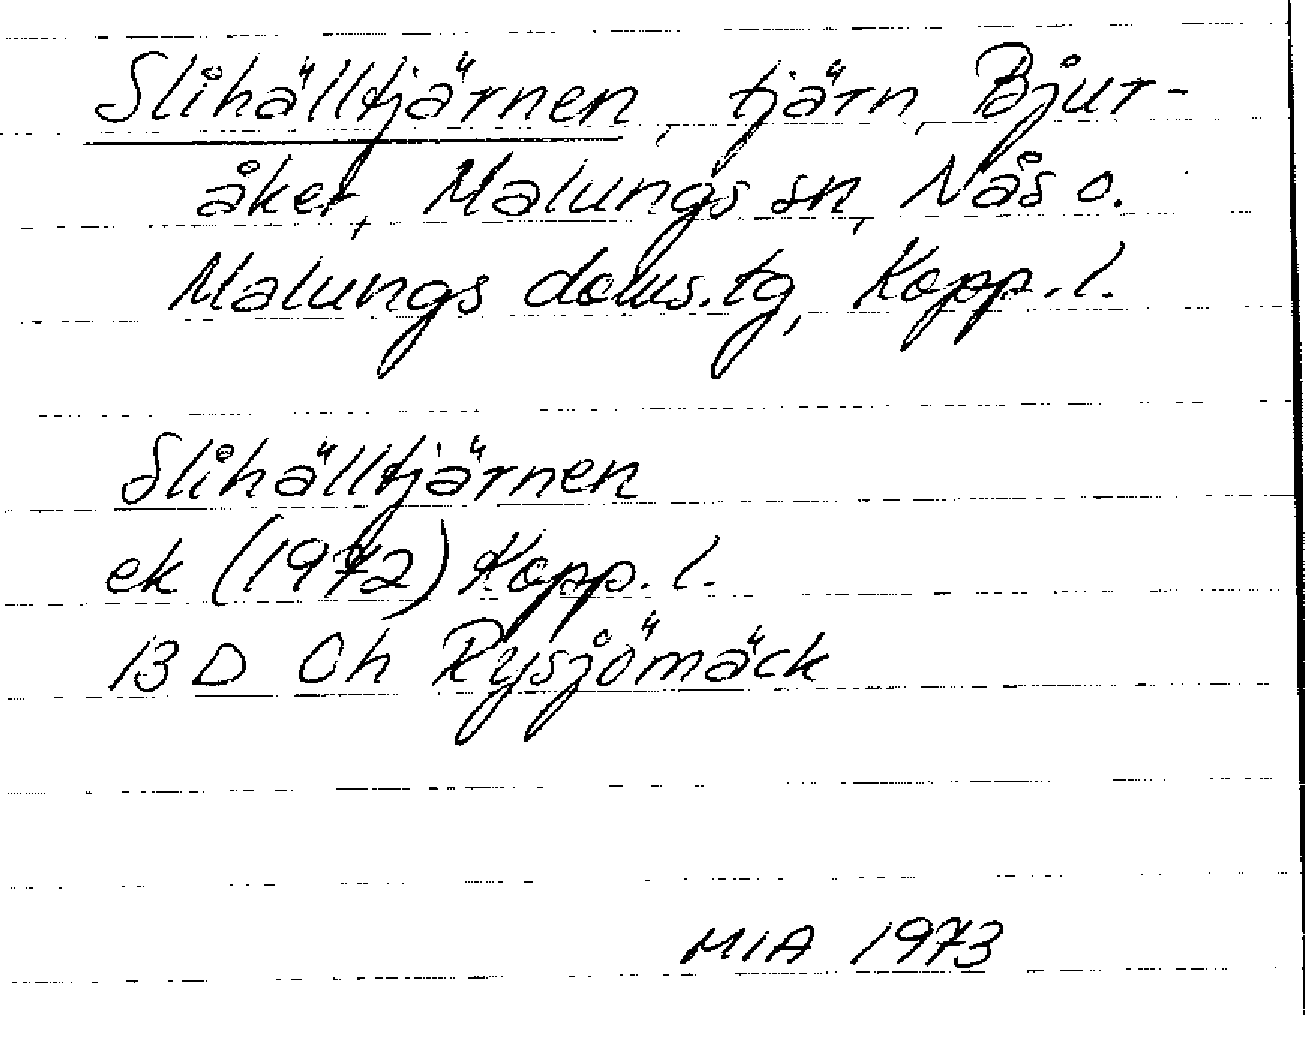 Slihälltjärnen, tjärn, Bjur-
åker, Malungs sn, Nås o.
Malungs doms.tg, Kopp. l.
Slihälltjärnen
ek (1972) Kopp. l.
13 D 0h Rysjömäck
MIA 1973